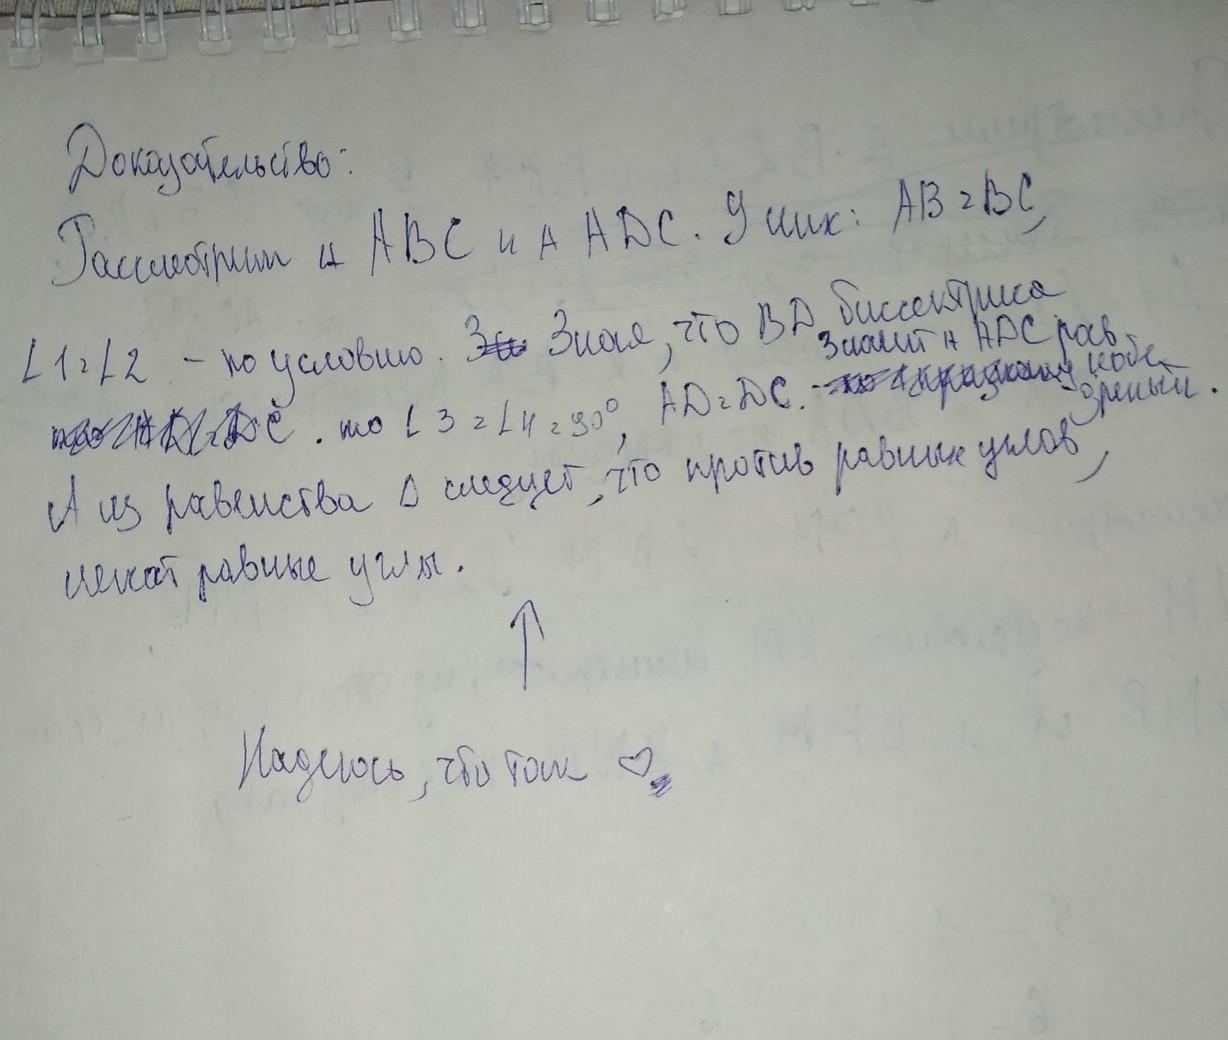 Доказательство:
Рассмотрим △ ABC и △ ADC. У них: AB = BC,
∠1 = ∠2 – по условию. Зная, что BD биссектриса
то ∠3 = ∠4 = 90°, AD = DC. Значит △ ADC равнобе
дреный.
А из равенства △ следует, что против равных углов,
лежат равные углы.
↑
Надеюсь, что так ♡